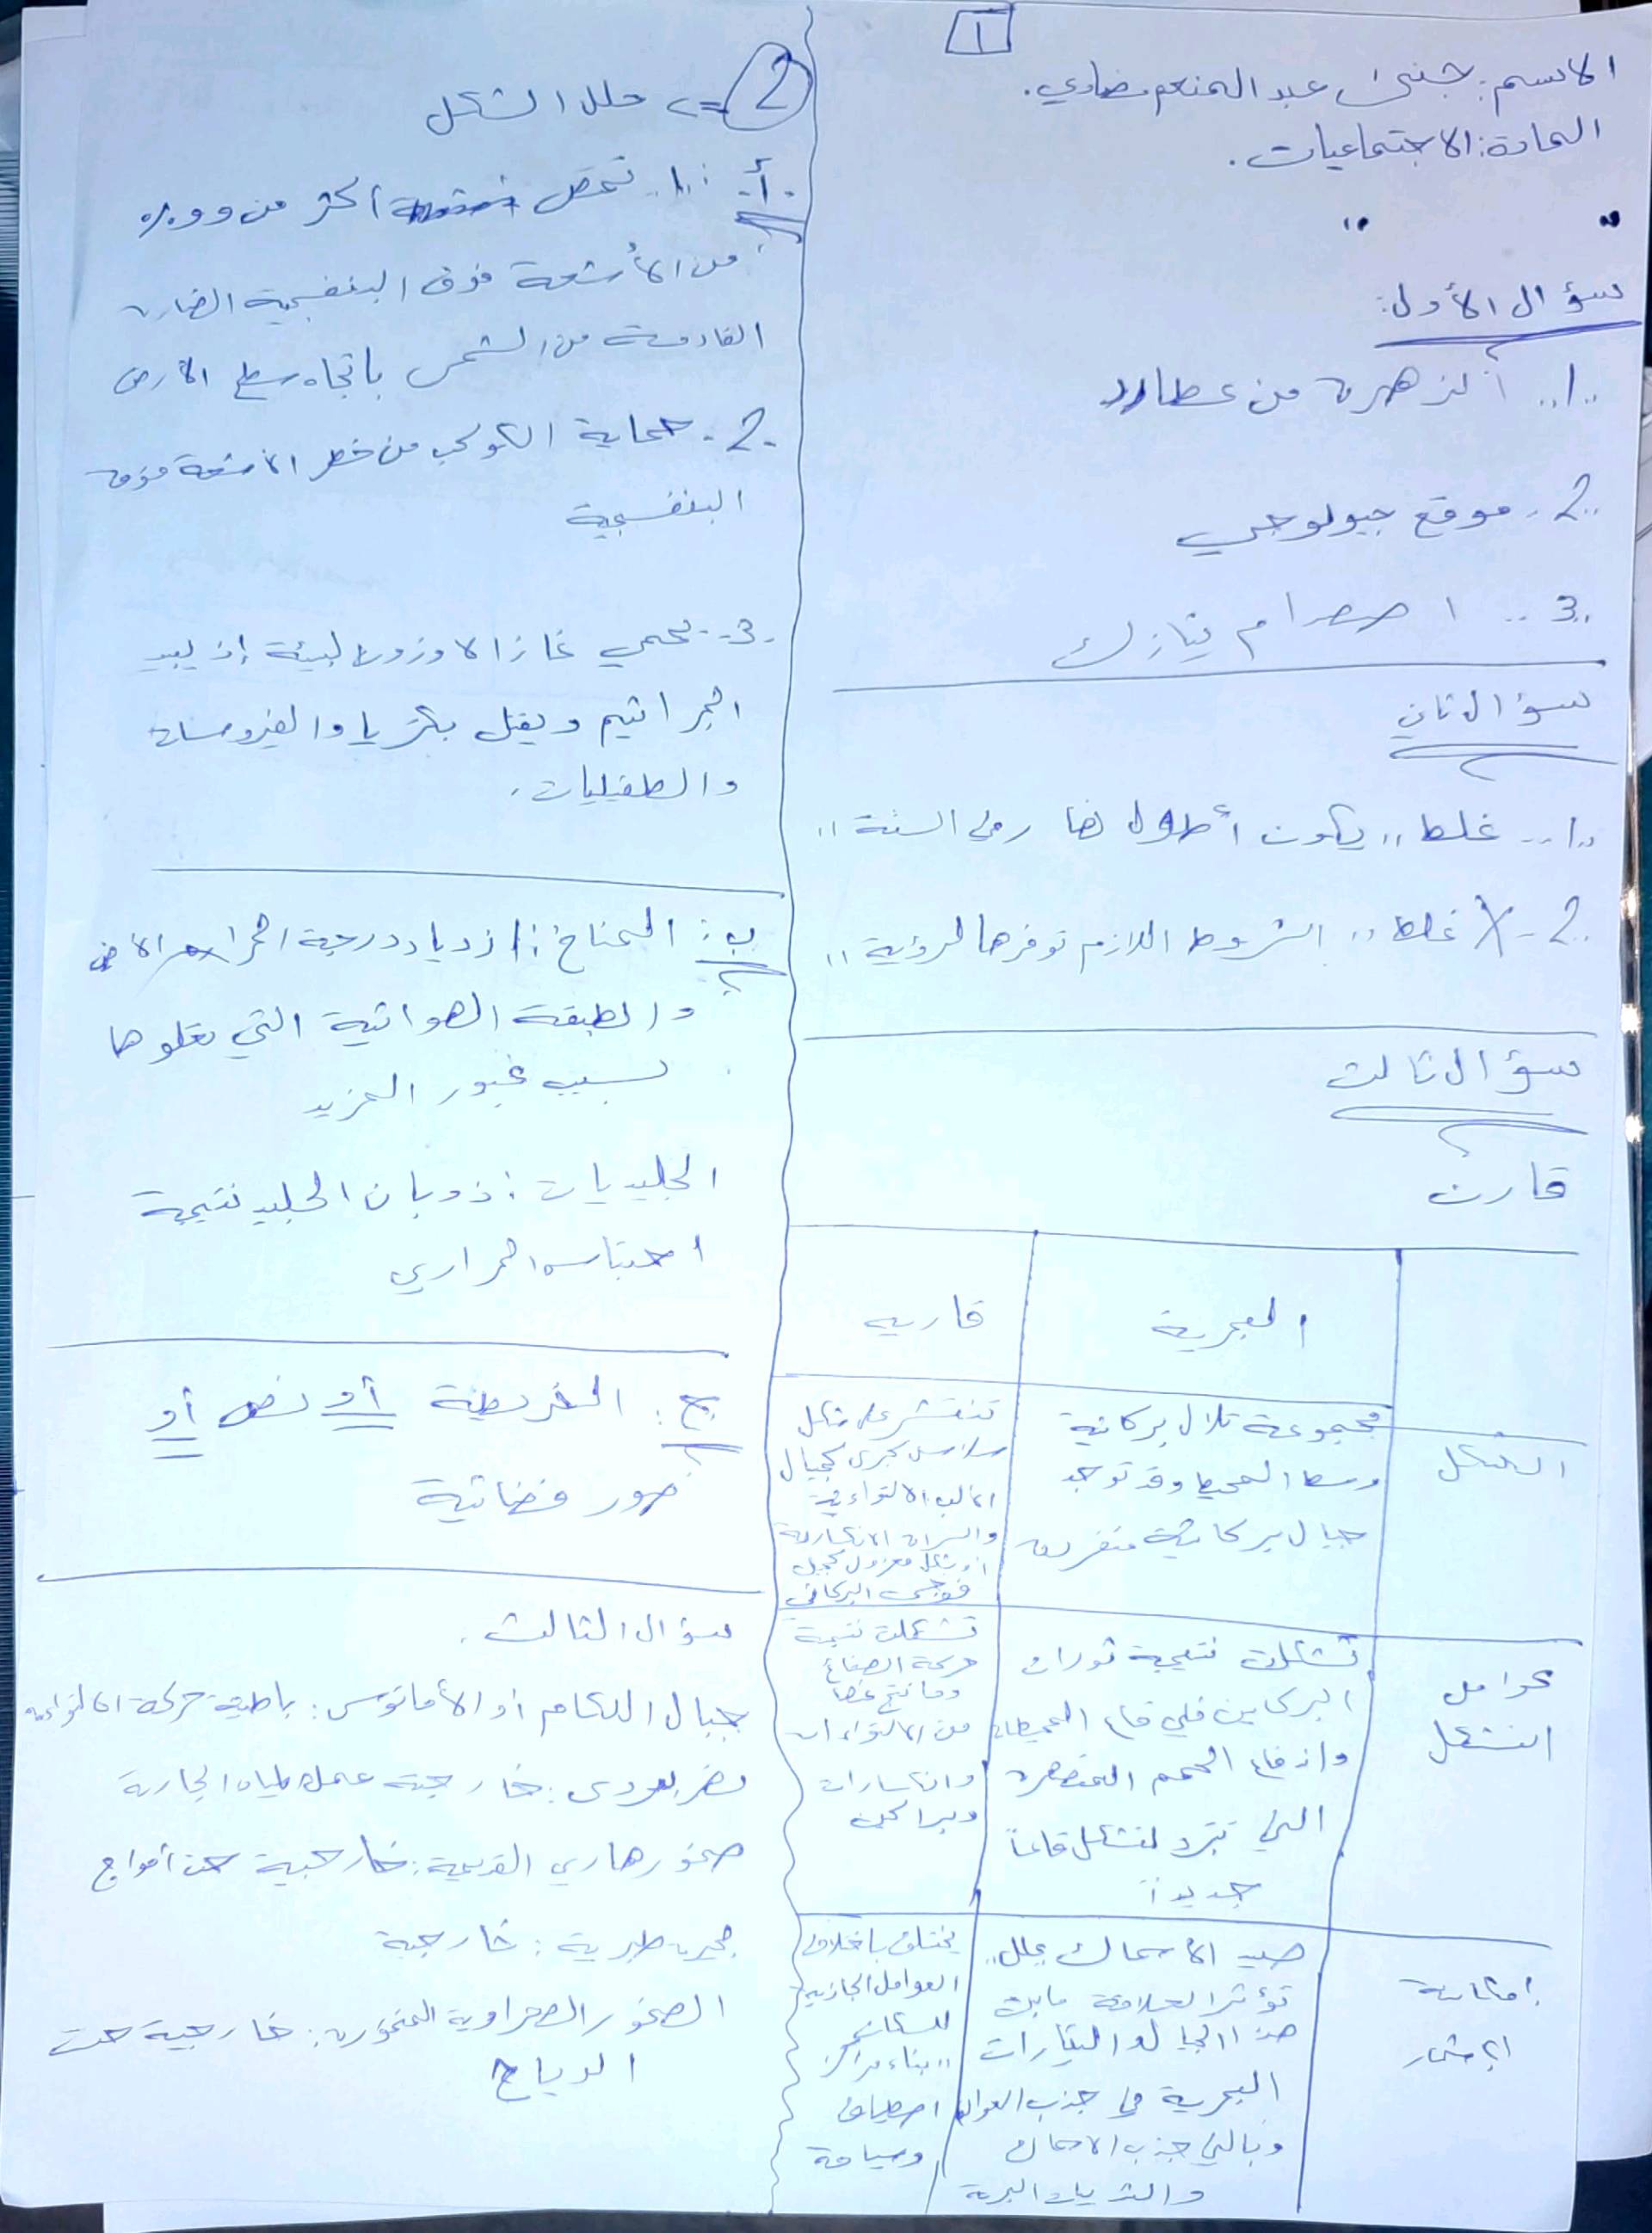 1
الاسم: جنى عبد المنعم مضاوي.
المادة: الاجتماعيات.
" "
سؤال الأول:
1.. الزهرة من عطارد
2.. موقع جيولوجي
3.. اصطدام نيازك
سؤال ثاني
1.. غلط ,, يكون أطول نهار في السنة ,,
2.. X غلط ,, الشروط اللازم توفرها لرؤية ,,
سؤال ثالث
قارن
البحرية
قاريه
الشكل
مجموعة تلال بركانية
وسط المحيط وقد توجد
جبال بركانية منفردة
تنتشر على شكل
سلاسل كبرى كجبال
الألب الالتوائية
والسرات الانكسارية
أو بشكل معزول كجبل
فوجي البركاني
عوامل
التشكل
تشكلت نتيجة ثوران
البراكين في قاع المحيطات
واندفاع الحمم المنصهرة
التي تبرد لتشكل قاعاً
جديداً
تشكلت نتيجة
حركة الصفائح
وما نتج عنها
من التواءات
وانكسارات
وبراكين
إمكانية
استثمار
صيد الأسماك علل ,,
تؤثر العلاقة ما بين
هذا الجبال والتيارات
البحرية في جذب العوالق
وبالتالي جذب الأسماك
والثدييات البحرية
يختلف باختلاف
العوامل الجاذبة
للسكان
,, بناء مراكز
اصطياف
وسياحة
2 => حلل الشكل
أ: 1.. تمتص أكثر من 99%
من الأشعة فوق البنفسجية الضارة
القادمة من الشمس باتجاه سطح الأرض
2.. حماية الكوكب من خطر الأشعة فوق
البنفسجية
3.. يحمي غاز الاوزون البيئة إذ يبيد
الجراثيم ويقتل بكتريا والفيروسات
والطفيليات.
ب: المناخ: ازدياد درجة الحرارة الأرض
والطبقة الهوائية التي تعلوها
بسبب عبور المزيد
الجليديات: ذوبان الجليد نتيجة
احتباس الحراري
ج: الخريطة أو نص أو
صور فضائية
سؤال الثالث.
جبال اللكام أو الأمانوس: باطنية حركة التوائية
نهر بردى: خارجية عمل المياه الجارية
صخور هاري القديمة: خارجية حت أمواج
بحيرة طبرية: خارجية
الصخور الصحراوية المنخورة: خارجية حت
الرياح